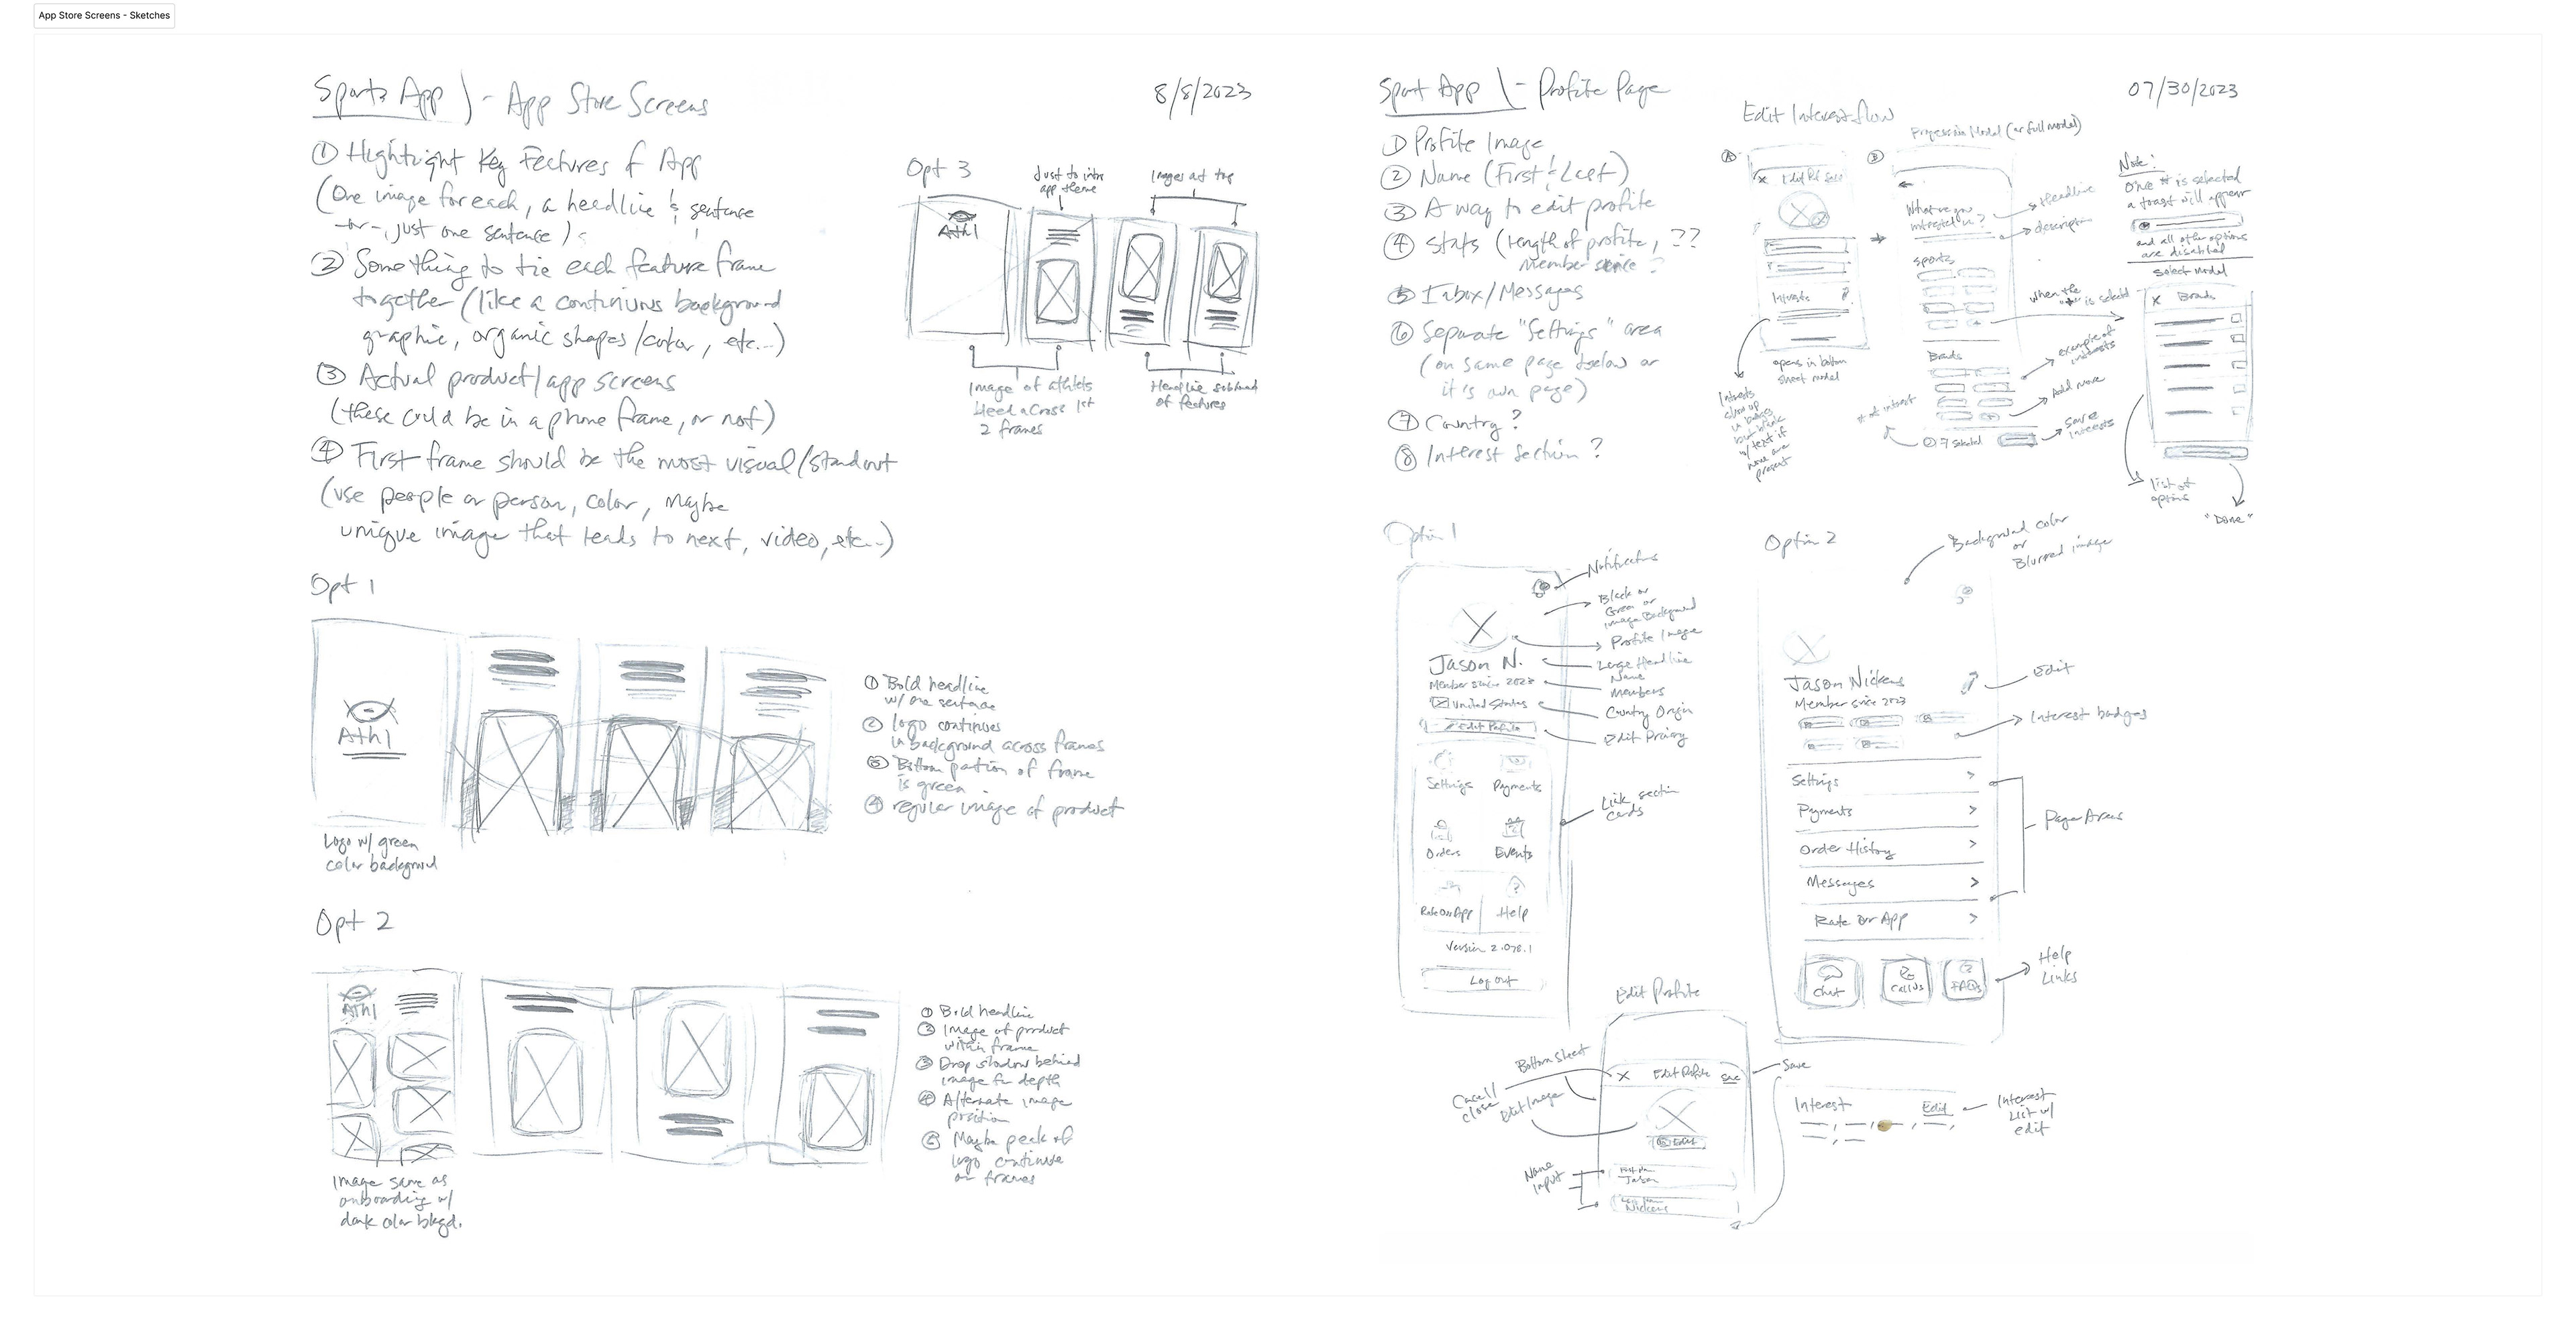 App Store Screens - Sketches
Sports App - App Store Screens
8/8/2023
① Hightlight Key Features of App
(One image for each, a headline & sentence
-or-, just one sentence)
② Something to tie each feature frame
together (like a continious background
graphic, organic shapes/color, etc...)
③ Actual product/app screens
(these could be in a phone frame, or not)
④ First frame should be the most visual/standout
(use people or person, color, Maybe
unique image that leads to next, video, etc...)
Opt 3
Just to intro
app theme
Images at top
Athl
Image of athlets
bleed across 1st
2 frames
Headline subhead
of features
Opt 1
Athl
Logo w/ green
color background
① Bold headline
w/ one sentence
② logo continues
in background across frames
③ Bottom portion of frame
is green
④ regular image of product
Opt 2
Athl
Image same as
onboarding w/
dark color bkgd.
① Bold headline
② Image of product
within frame
③ Drop shadow behind
image for depth
④ Alternate image
position
⑤ Maybe peek of
logo continue
on frames
Sport App - Profile Page
07/30/2023
① Profile Image
② Name (First & Last)
③ A way to edit profile
④ Stats (length of profile, ??
Member since ?
⑤ Inbox/Messages
⑥ Separate "Settings" area
(on same page below or
it's own page)
⑦ Country ?
⑧ Interest Section ?
Edit Interest flow
Progression Model (or full model)
A
X Edit
Interests
opens in bottom
sheet model
Interests
show up
in badges
but blank
w/ text if
none are
present
B
What are you
interested in?
Headline
description
Sports
Brands
when the
"+" is selected
example of
interests
Add more
# of interest
7 Selected
Save
interests
Note:
One # is selected
a toast will appear
and all other options
are disabled
Select model
X Brands
list of
options
"Done"
Option 1
Notifications
Black or
Green or
image Background
Profile Image
Large Headline
Name
Members
Country Origin
Jason N.
Member since 2023
United States
Edit Profile
Settings Payments
Link section
cards
Orders Events
Rate Our App Help
Version 2.078.1
Log Out
Option 2
Background color
or
Blurred image
Jason Nickens
Member since 2023
Edit
Interest badges
Settings >
Payments >
Order History >
Messages >
Rate Our App >
Page Areas
Chat
Call Us
FAQs
Help
Links
Edit Profile
Bottom Sheet
X Edit Profile Save
Save
Cancel/
close
Edit Image
Edit
Name
input
First Name
Jason
Last Name
Nickens
Interest Edit
Interest
List w/
edit